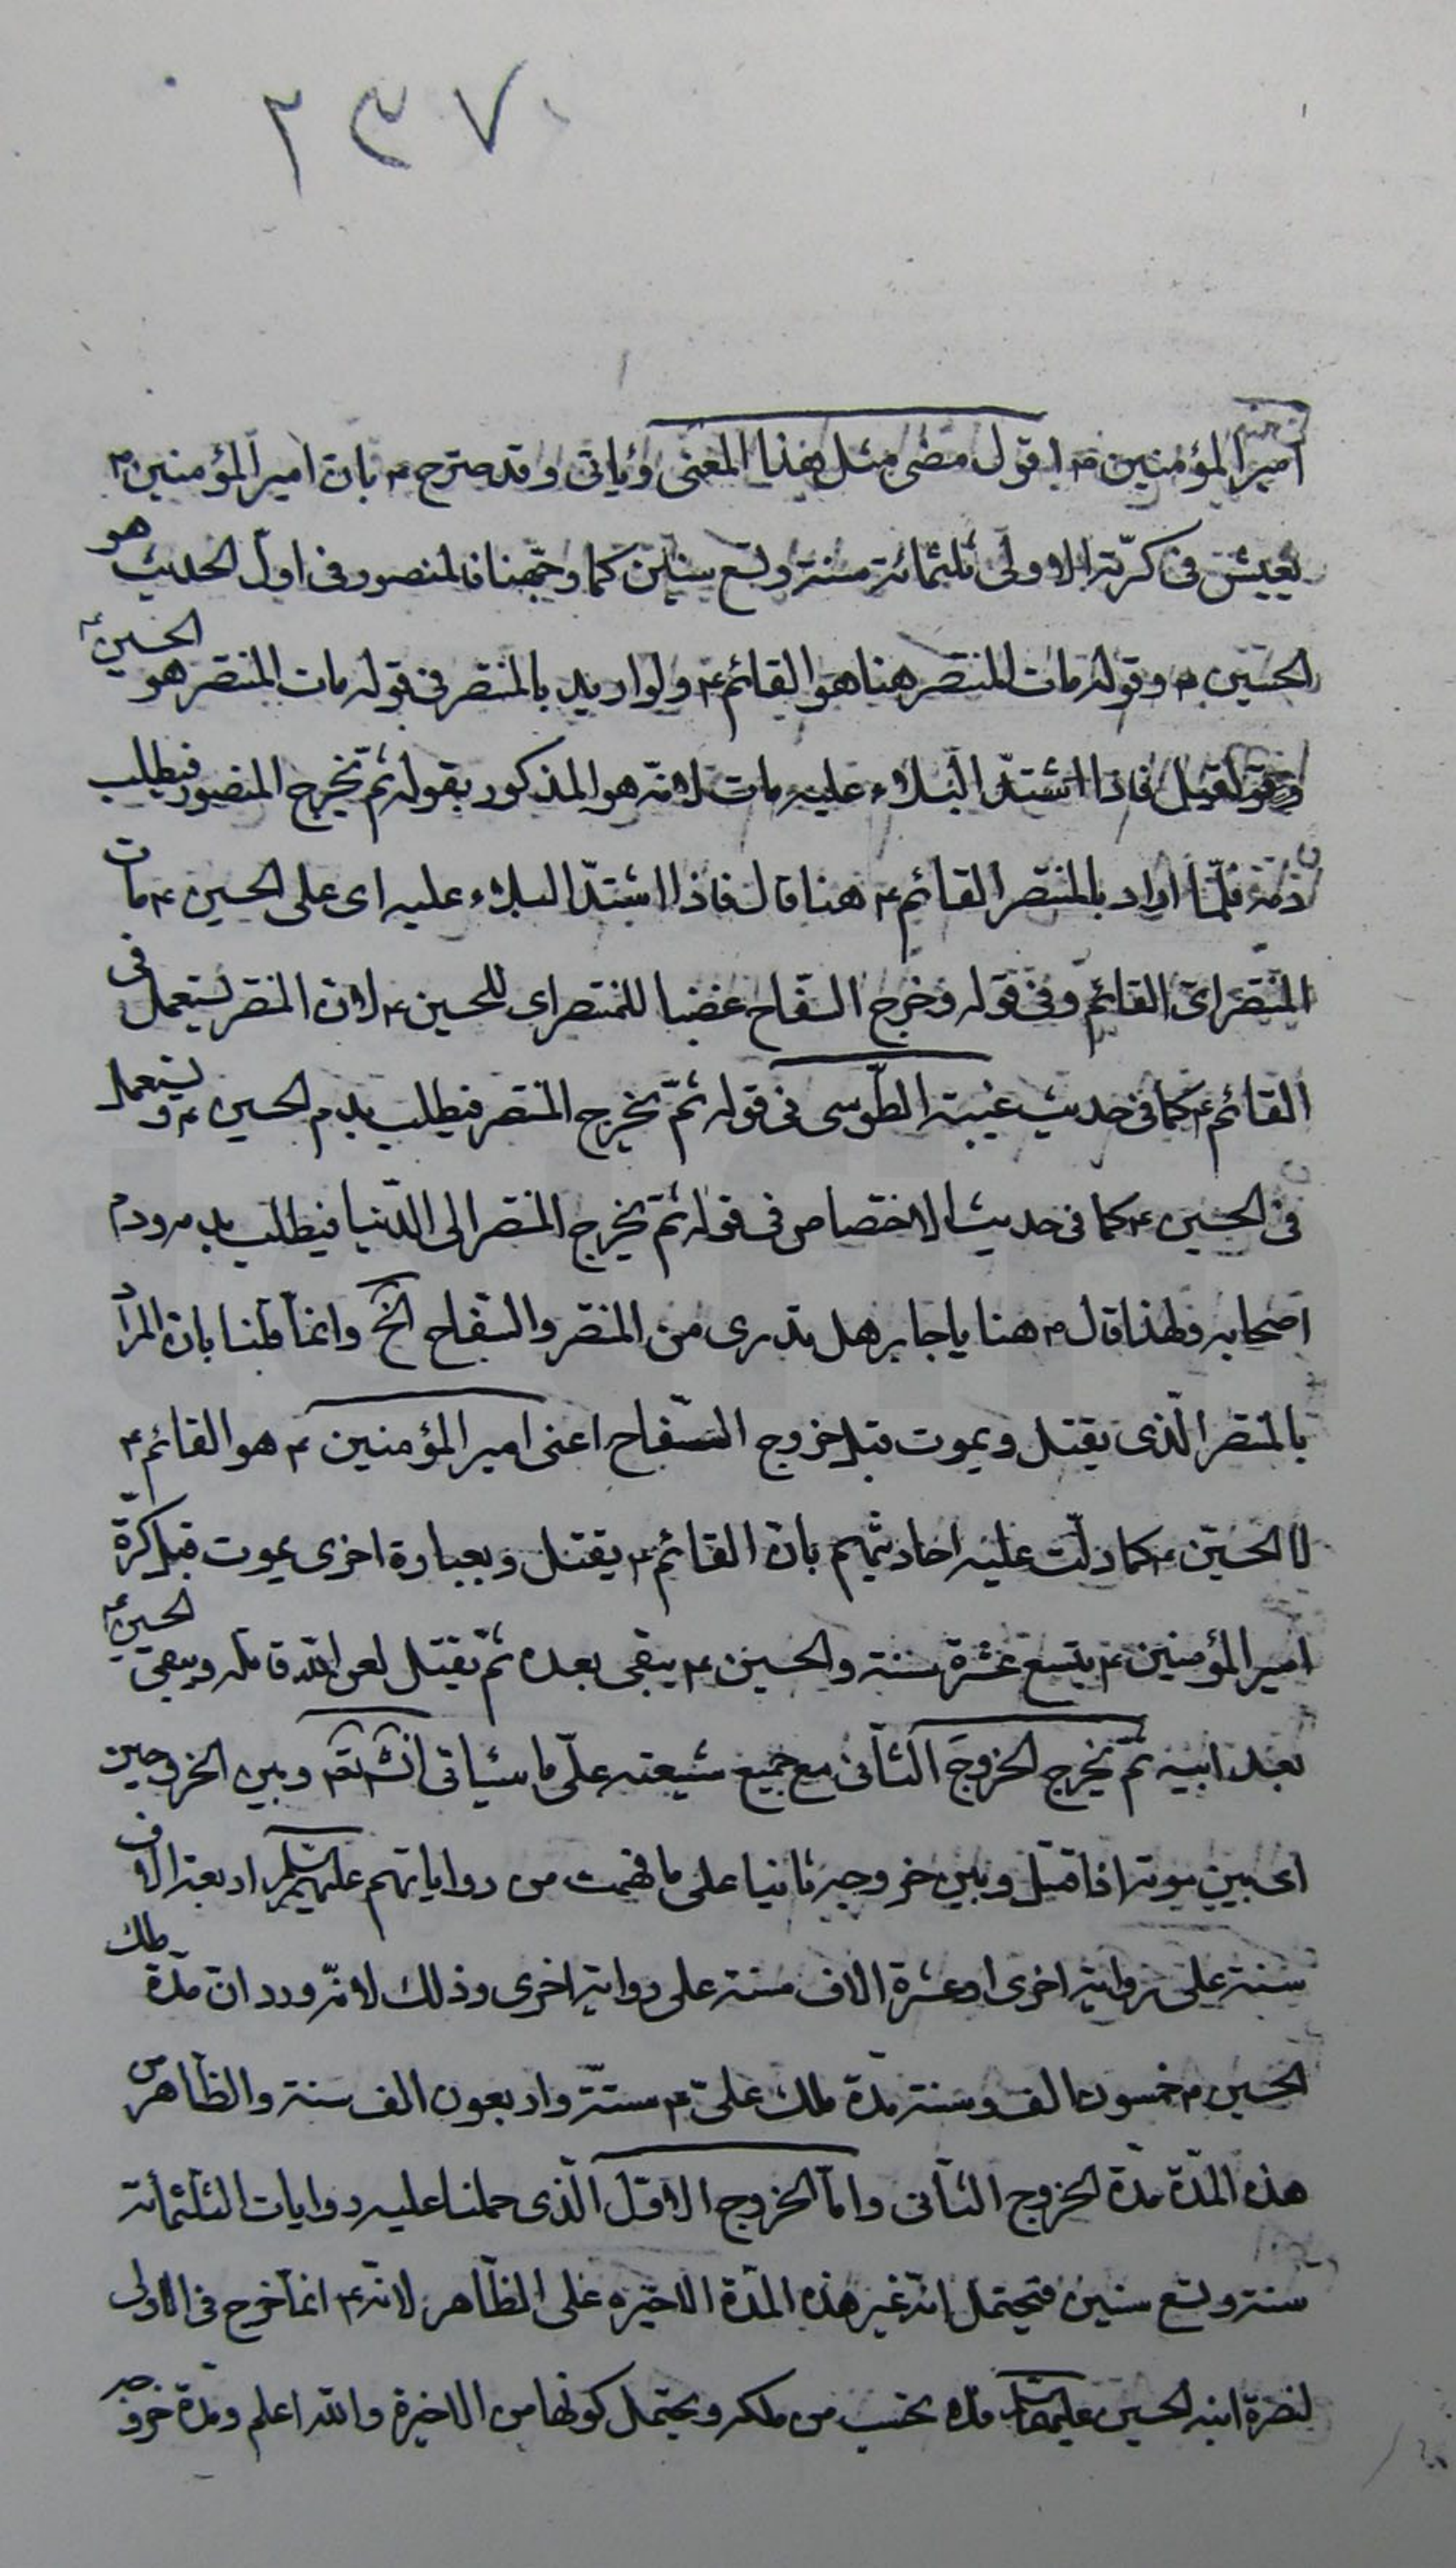 ٢٣٧
امير المؤمنين ۴ اقول مضى مثل هذا المعنى ويأتى وقد صرّح ۴ بان امير المؤمنين ۴
يعيش فى كرّته الاولى ثلثمائة سنة وتسع سنين كما وجّهنا فالمنصور فى اول الحديث هو
الحسين ۴ وقوله مات المنتصر هنا هو القائم ۴ ولو اريد بالمنتصر فى قوله مات المنتصر هو الحسين ۴
لقيل فاذا اشتدّ البلاء عليه مات لانه هو المذكور بقوله ثم يخرج المنصور فيطلب
دمه فلمّا اراد بالمنتصر القائم ۴ هنا قال فاذا اشتدّ البلاء عليه اى على الحسين ۴ مات
المنتصر اى القائم وفى قوله وخرج السفاح غضبا للمنتصر اى للحسين ۴ لان المنتصر يستعمل فى
القائم ۴ كما فى حديث غيبة الطّوسى فى قوله ثمّ يخرج المنتصر فيطلب بدم الحسين ۴ ويستعمل
فى الحسين ۴ كما فى حديث الاختصاص فى قوله ثمّ يخرج المنتصر الى الدّنيا فيطلب بدمه ودم
اصحابه ولهذا قال ۴ هنا يا جابر هل تدرى من المنتصر والسّفاح الخ وانما قلنا بان المراد
بالمنتصر الّذى يقتل ويموت قبل خروج السّفاح اعنى امير المؤمنين ۴ هو القائم ۴
لا الحسين ۴ كما دلّت عليه احاديثهم بان القائم ۴ يقتل وبعبارة اخرى يموت قبل كرّة
امير المؤمنين ۴ بتسع عشرة سنة والحسين ۴ يبقى بعده ثمّ يقتل لعن الله قاتله ويبقى الحسين ۴
بعد ابيه ثمّ يخرج الخروج الثّانى مع جميع شيعته على ما سيأتى انش تع وبين الخروجين
اى بين موته اذا قتل وبين خروجه ثانيا على ما فهمت من رواياتهم عليهم السلم اربعة الاف
سنة على رواية اخرى او عشرة الاف سنة على رواية اخرى وذلك لانّه ورد ان مدّة ملك
الحسين ۴ خمسون الف وسنة مدّة ملك علىّ ۴ ستّة واربعون الف سنة والظّاهر من
هذه المدّة مدّة الخروج الثّانى وامّا الخروج الاوّل الّذى حملنا عليه روايات الثلثمائة
سنة وتسع سنين فيحتمل انّه غير هذه المدّة الاخيرة على الظّاهر لانّه ۴ انما خرج فى الاولى
لنصرة ابنه الحسين عليهما السلم فلا يحتسب من ملكه ويحتمل كونها من الاخيرة والله اعلم ومدّة خروجه